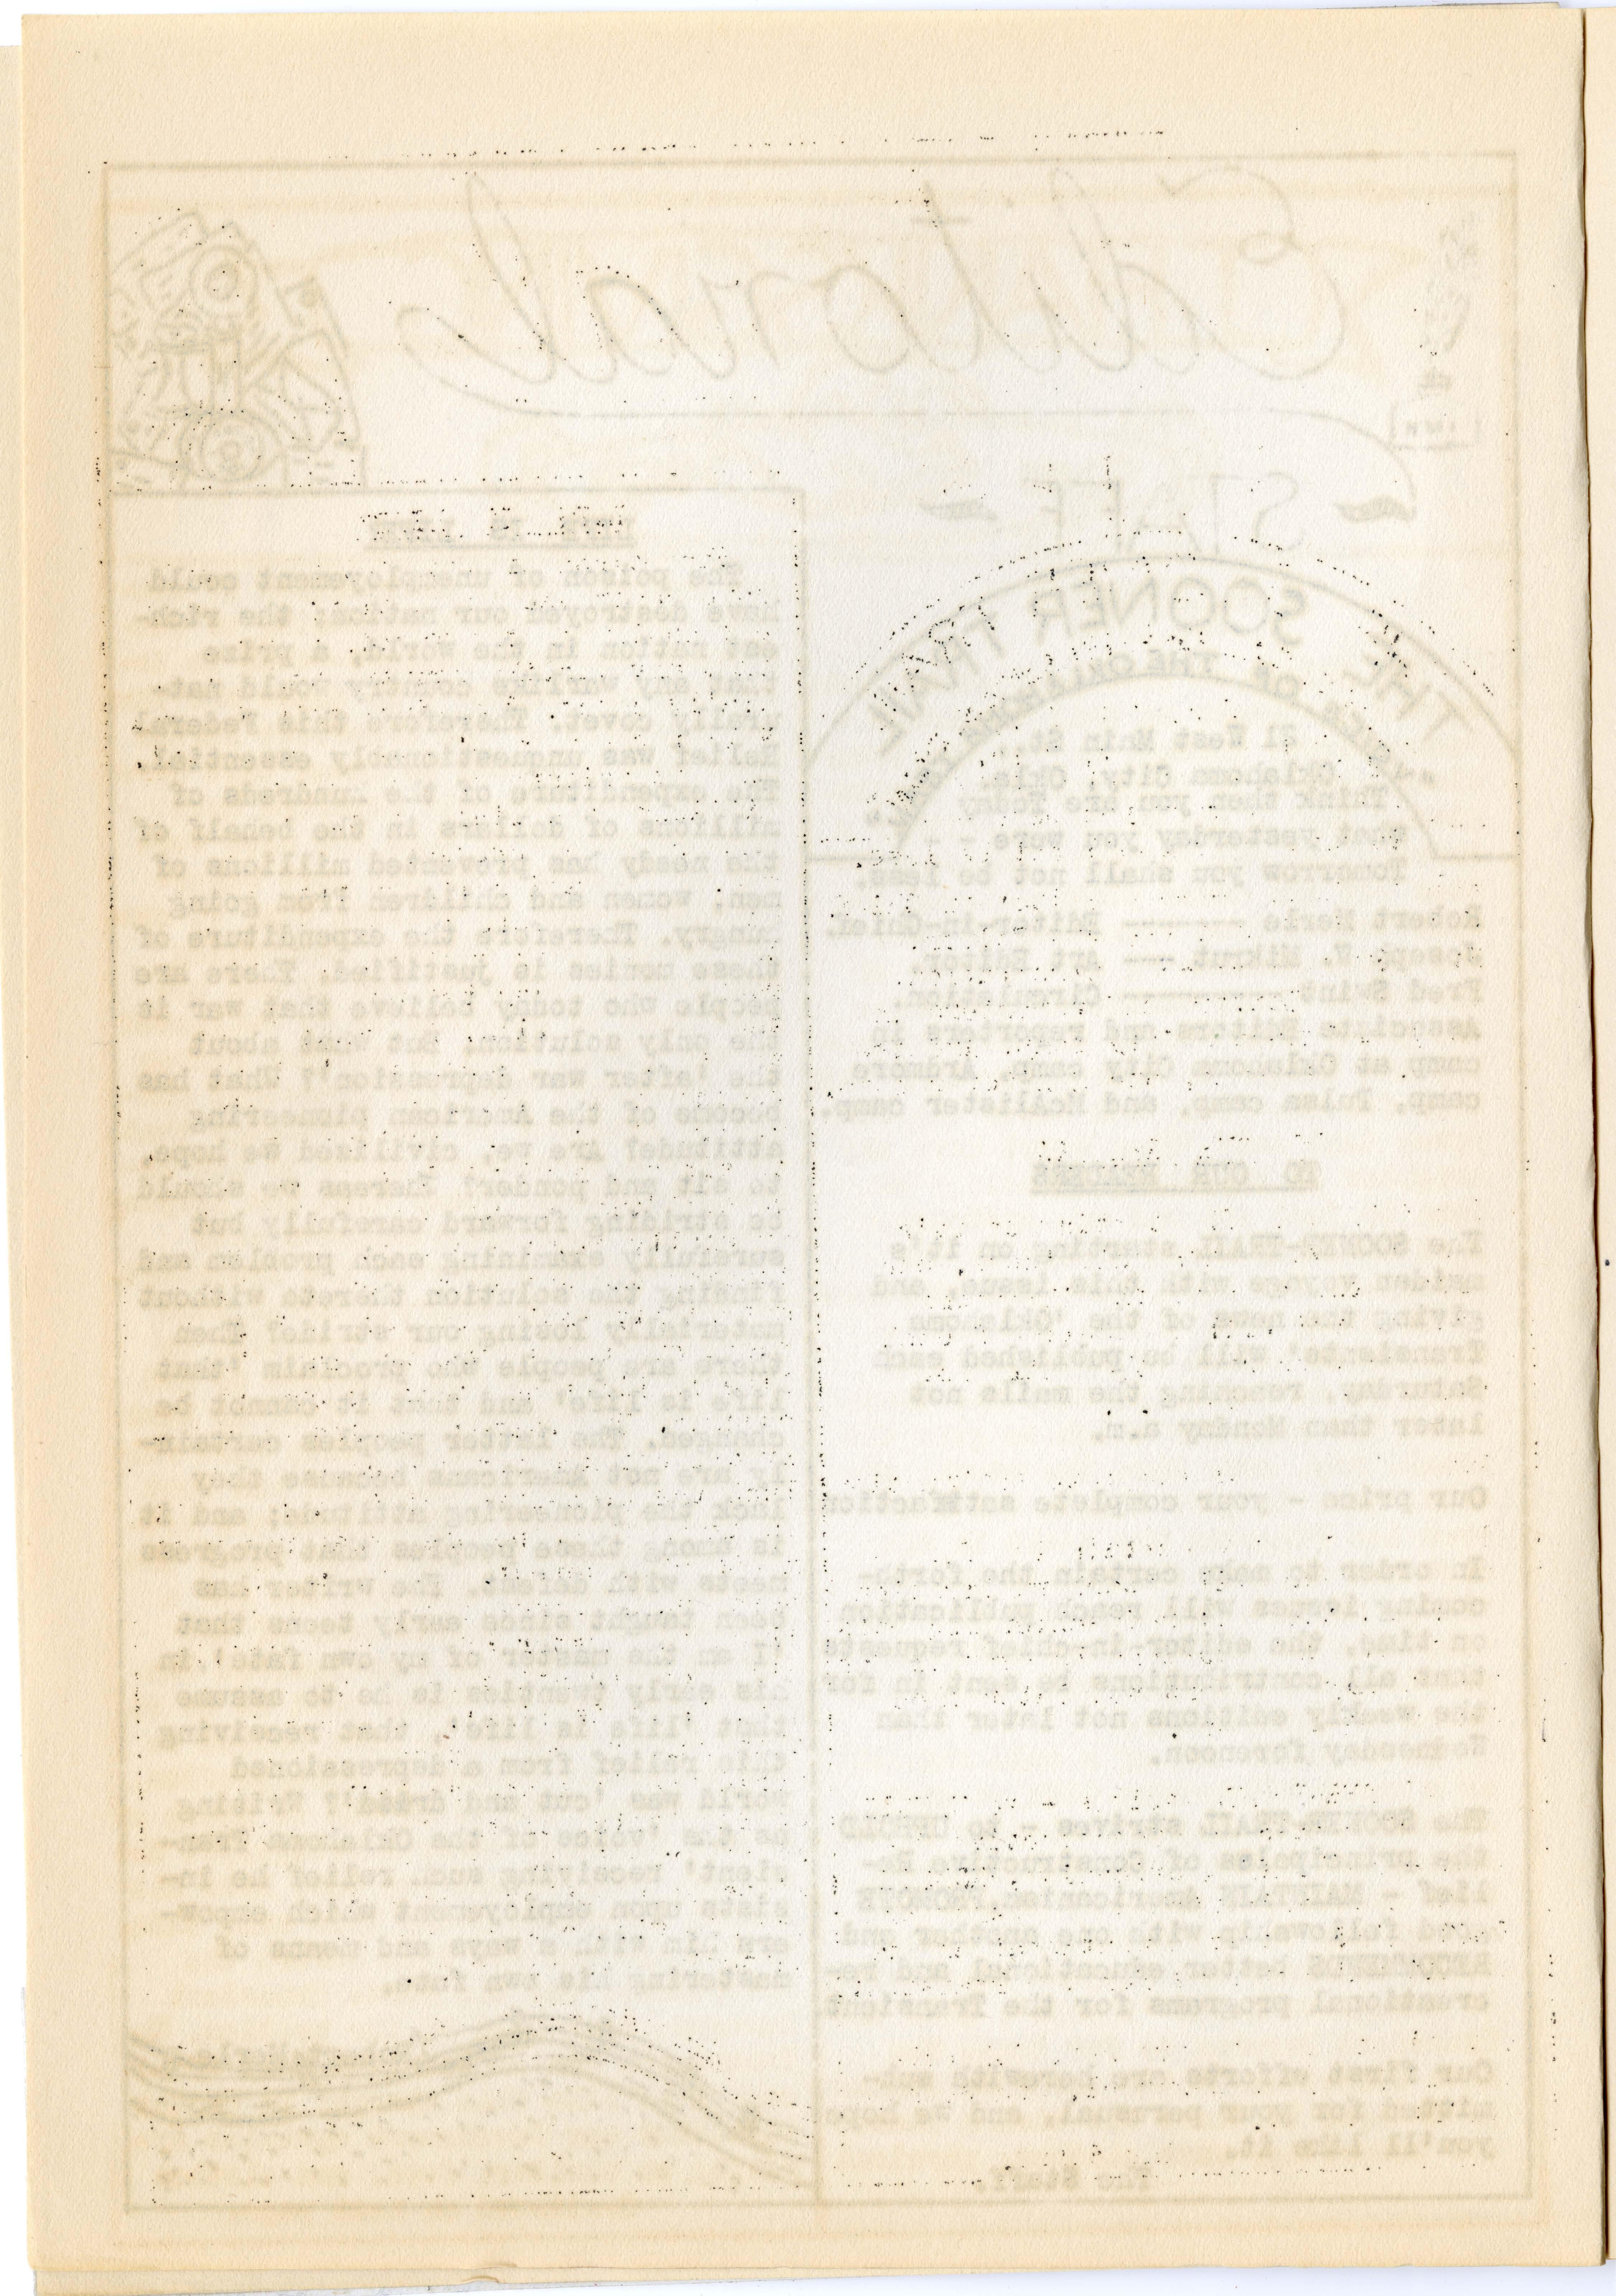 Editorials
STAFF
THE SOONER TRAIL
21 West Main St.
Oklahoma City, Okla.
Think then you are Today
what yesterday you were - -
Tomorrow you shall not be less.
Robert Merle ------- Editor-in-Chief.
Joseph V. Mikrut --- Art Editor.
Fred Swint --------- Circulation.
Associate Editors and reporters in
camp at Oklahoma City camp, Ardmore
camp, Tulsa camp, and McAllister camp.
TO OUR READERS
The SOONER-TRAIL starting on it's
maiden voyage with this issue, and
giving the news of the 'Oklahoma
Transients' will be published each
Saturday, reaching the mails not
later than Monday a.m.
Our price - your complete satisfaction
In order to make certain the forth-
coming issues will reach publication
on time, the editor-in-chief requests
that all contributions be sent in for
the weekly editions not later than
Wednesday forenoon.
The SOONER-TRAIL strives - to UPHOLD
the principles of Constructive Re-
lief - MAINTAIN Americanism, PROMOTE
good fellowship with one another and
better educational and re-
creational programs for the Transient.
Our first efforts are herewith sub-
mitted for your perusal, and we hope
you'll like it.
The Staff.
The poison of unemployement could
have destroyed our nation; the rich-
est nation in the world, a prize
that any warring country could nat-
urally covet. Therefore this Federal
Relief was unquestionably essential.
The expenditure of the hundreds of
millions of dollars in the behalf of
the needy has prevented millions of
men, women and children from going
hungry. Therefore the expenditure of
these monies is justified. There are
people who today believe that war is
the only solution. But what about
the 'after war depression'? What has
become of the American pioneering
attitude? Are we, civilized we hope,
to sit and ponder? Whereas we should
be striding forward carefully but
surefully examining each problem and
finding the solution thereto without
materially losing our strife? Then
there are people who proclaim 'that
life is life' and that it cannot be
changed. The latter peoples certain-
ly are not Americans because they
lack the pioneering attitude; and it
is among these peoples that progress
meets with defeat. The writer has
been taught since early teens that
'I am the master of my own fate' in
his early twenties is he to assume
that 'life is life', that receiving
this relief from a depressioned
world was 'cut and dried'? Writing
as the 'voice of the Oklahoma Tran-
sient' receiving such relief he in-
sists upon employement which empow-
ers him with a ways and means of
mastering his own fate.